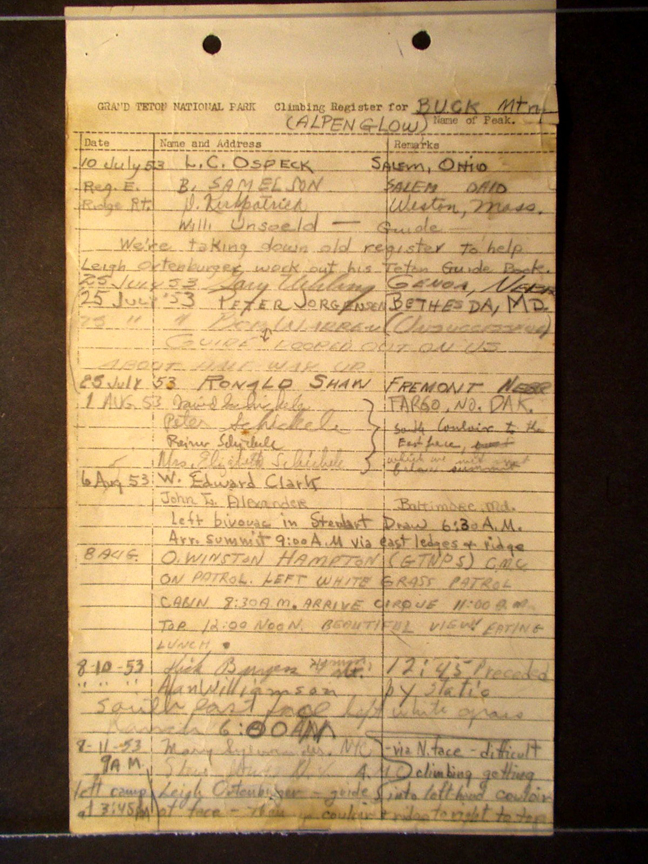 GRAND TETON NATIONAL PARK Climbing Register for BUCK Mtn.
(ALPENGLOW) Name of Peak.
Date Name and Address Remarks
10 July 53 L.C. OSPECK SALEM, OHIO
Reg. E. B. SAMELSON SALEM OHIO
Ridge Rt. D. Kirkpatrick Weston, Mass.
Willi Unsoeld — Guide —
We're taking down old register to help
Leigh Ortenburger work out his Teton Guide Book.
25 July 53 Gary GENOA, Nebr
25 July '53 PETER JORGENSEN BETHESDA, MD.
25 " " WARREN (UNSUCCESSFUL)
GUIDE POOPED OUT ON US
ABOUT HALF WAY UP
25 July 53 RONALD SHAW FREMONT NEBR
1 AUG. 53 David Schickele FARGO, NO. DAK.
Peter Schickele south couloir to the
Rainer Schickele East face,
Mrs. Elizabeth Schickele which we
below summit
6 Aug 53 W. Edward Clark
John E. Alexander Baltimore, Md.
Left bivouac in Stewart Draw 6:30 A.M.
Arr. summit 9:00 A.M via east ledges & ridge
8 AUG. O. WINSTON HAMPTON (GTNPS)
ON PATROL. LEFT WHITE GRASS PATROL
CABIN 8:30 A.M. ARRIVE CIRQUE 11:00 A.M.
TOP 12:00 NOON. BEAUTIFUL VIEW EATING
LUNCH.
8-10-53 12:45 Preceded
" " " Alan Williamson by static
South East face left white grass
Ranch 6:00 AM
8-11-53 Mary Sylvander, -via N. face - difficult
9 A.M. climbing getting
left camp Leigh Ortenburger - guide into left hand couloir
at 3:45 AM of face - then up couloir & ridge to right to top